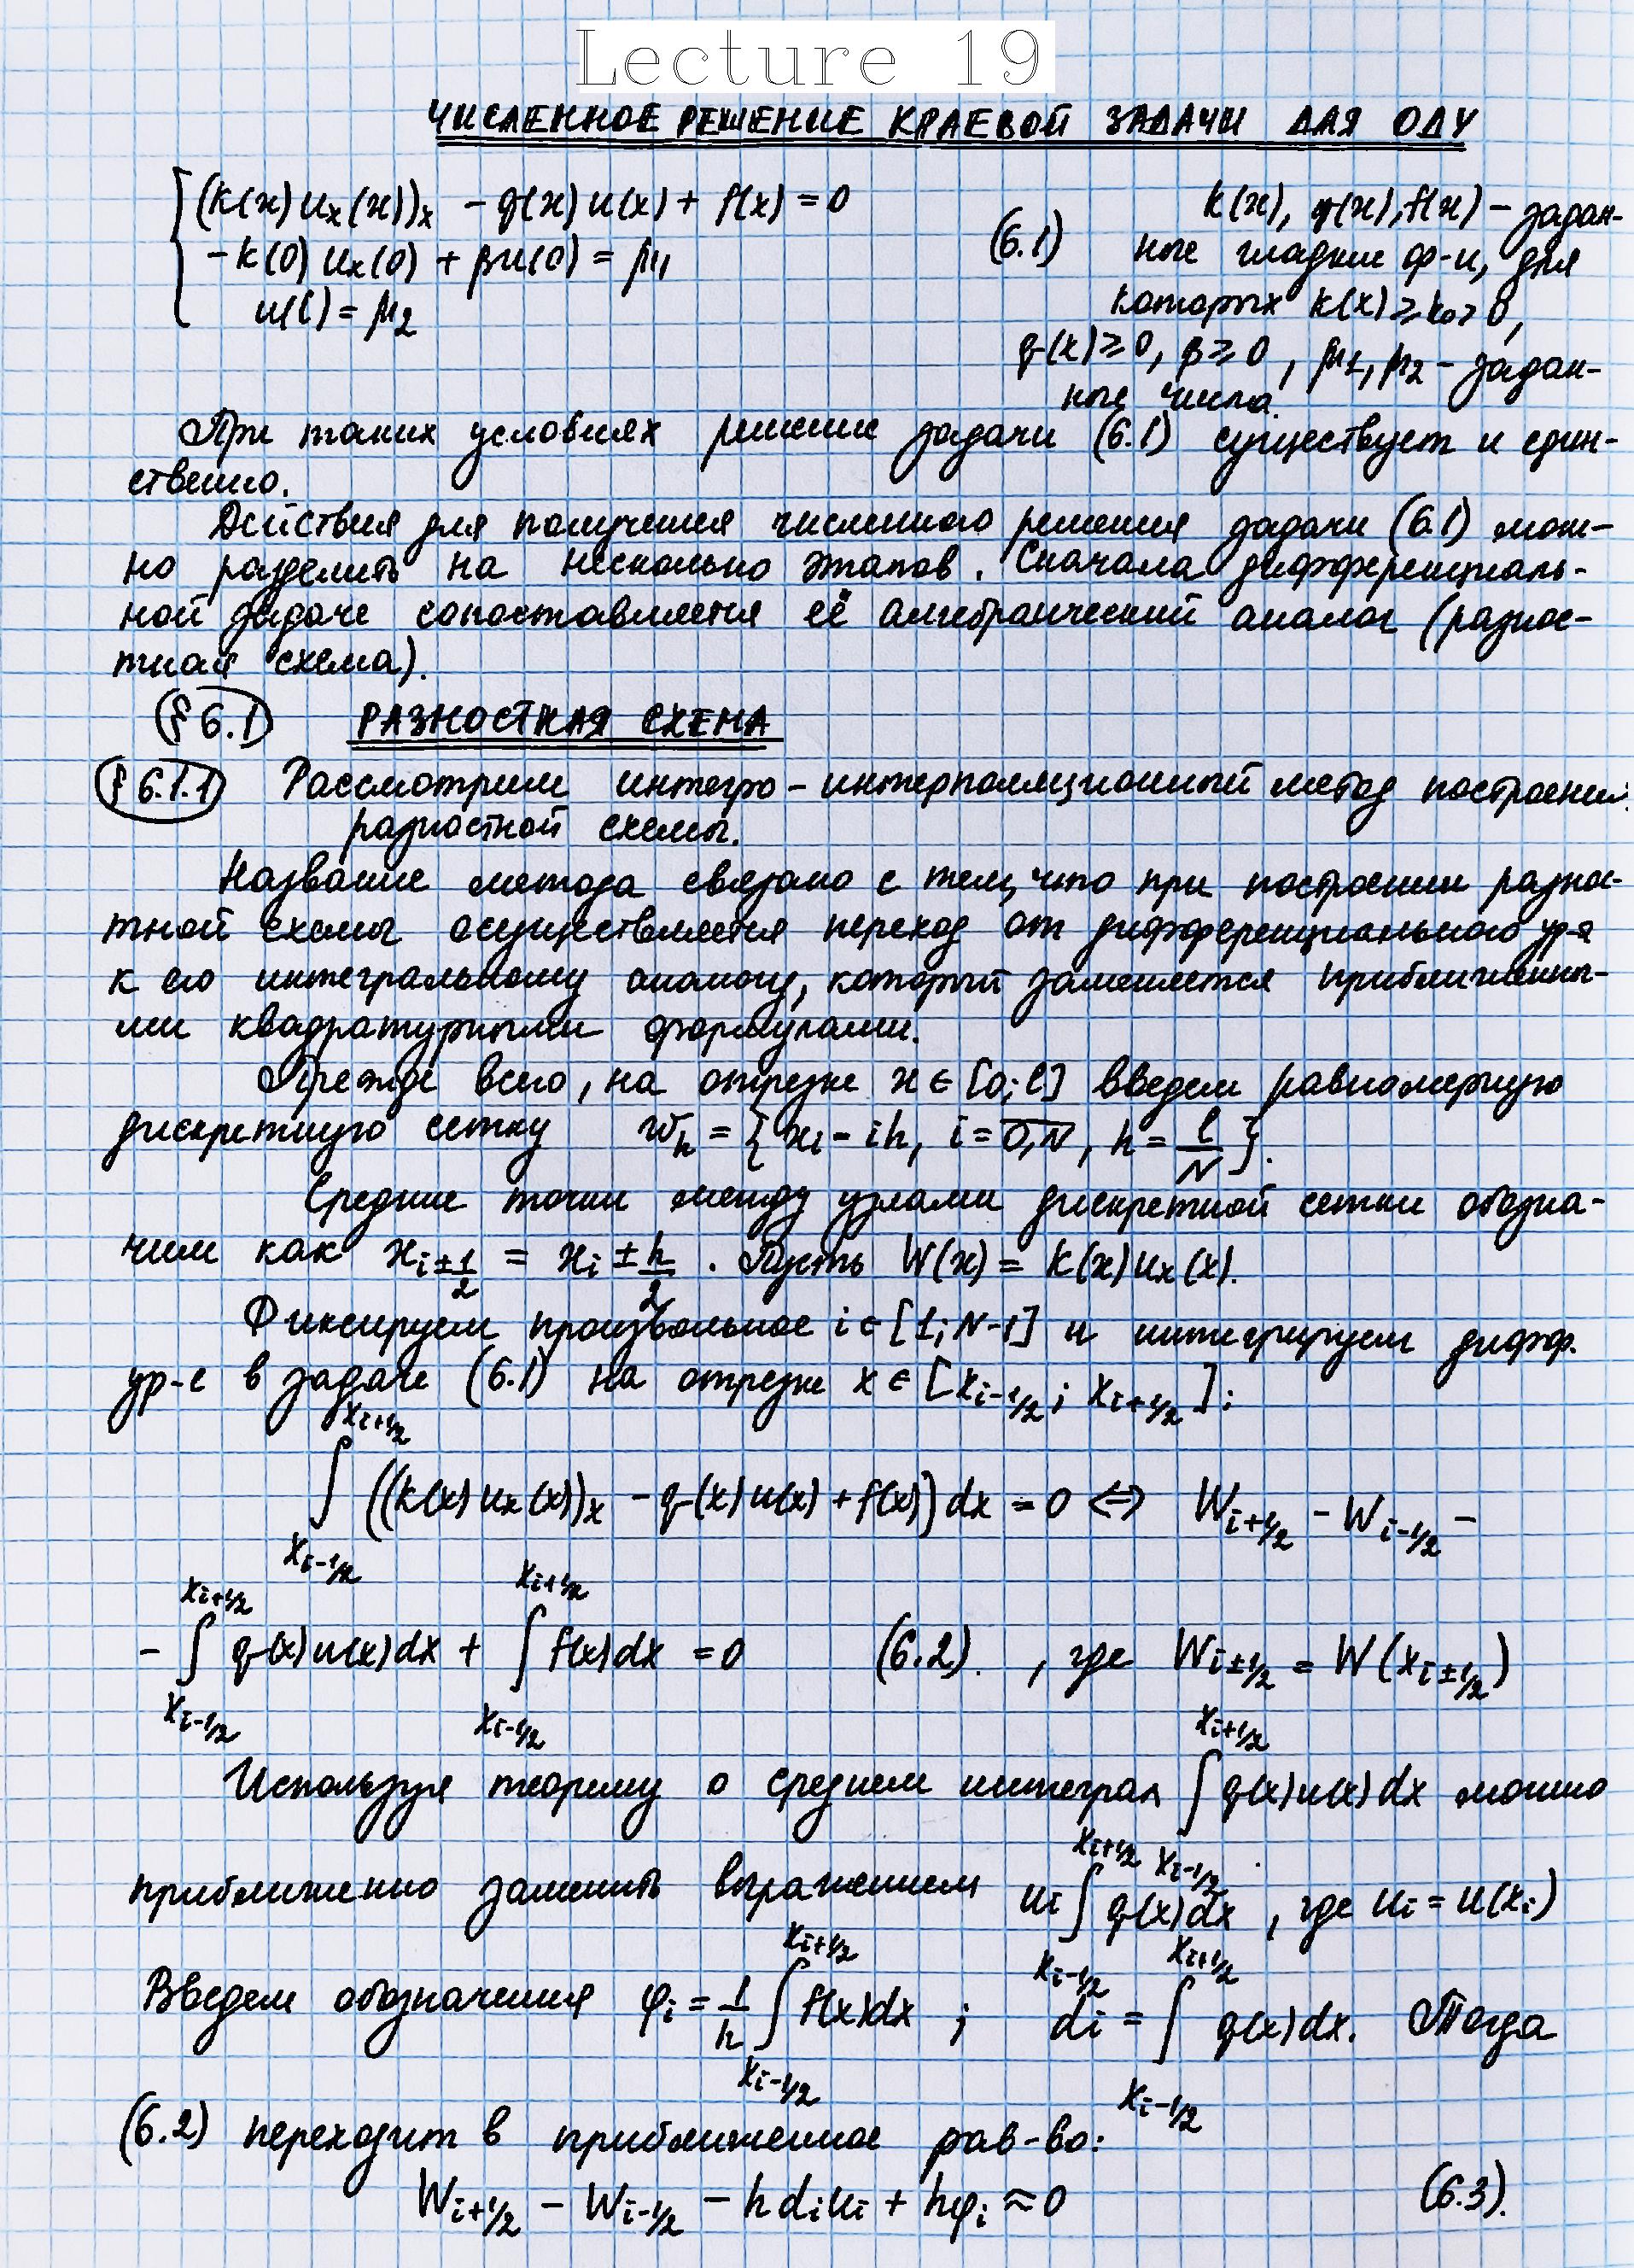 Lecture 19
ЧИСЛЕННОЕ РЕШЕНИЕ КРАЕВОЙ ЗАДАЧИ ДЛЯ ОДУ
(k(x)uₓ(x))ₓ - q(x)u(x) + f(x) = 0
-k(0)uₓ(0) + βu(0) = μ₁
u(l) = μ₂
(6.1)
k(x), q(x), f(x) - задан-
ные гладкие ф-и, для
которых k(x) ≥ k₀ > 0,
q(x) ≥ 0, β ≥ 0, μ₁, μ₂ - задан-
ные числа.
При таких условиях решение задачи (6.1) существует и един-
ственно.
Действия для получения численного решения задачи (6.1) мож-
но разделить на несколько этапов. Сначала дифференциаль-
ной задаче сопоставляется её алгебраический аналог (разнос-
тная схема).
§ 6.1 РАЗНОСТНАЯ СХЕМА
§ 6.1.1 Рассмотрим интегро-интерполяционный метод построения
разностной схемы.
Название метода связано с тем, что при построении разнос-
тной схемы осуществляется переход от дифференциального ур-я
к его интегральному аналогу, который заменяется приближенны-
ми квадратурными формулами.
Прежде всего, на отрезке x ∈ [0; l] введем равномерную
дискретную сетку w_h = {x_i - ih, i = 0,N, h = l/N}.
Средние точки между узлами дискретной сетки обозна-
чим как x_{i±1/2} = x_i ± h/2. Пусть W(x) = k(x)uₓ(x).
Фиксируем произвольное i ∈ [1; N-1] и интегрируем дифф.
ур-е в задаче (6.1) на отрезке x ∈ [x_{i-1/2}; x_{i+1/2}]:
∫_{x_{i-1/2}}^{x_{i+1/2}} ((k(x)uₓ(x))ₓ - q(x)u(x) + f(x))dx = 0 ⇔ W_{i+1/2} - W_{i-1/2} -
- ∫_{x_{i-1/2}}^{x_{i+1/2}} q(x)u(x)dx + ∫_{x_{i-1/2}}^{x_{i+1/2}} f(x)dx = 0 (6.2). , где W_{i±1/2} = W(x_{i±1/2})
Используя теорему о среднем интеграл ∫_{x_{i-1/2}}^{x_{i+1/2}} q(x)u(x)dx можно
приближенно заменить выражением u_i ∫_{x_{i-1/2}}^{x_{i+1/2}} q(x)dx, где u_i = u(x_i)
Введем обозначения φ_i = 1/h ∫_{x_{i-1/2}}^{x_{i+1/2}} f(x)dx ; d_i = ∫_{x_{i-1/2}}^{x_{i+1/2}} q(x)dx. Тогда
(6.2) переходит в приближенное рав-во:
W_{i+1/2} - W_{i-1/2} - h d_i u_i + hφ_i ≈ 0 (6.3).